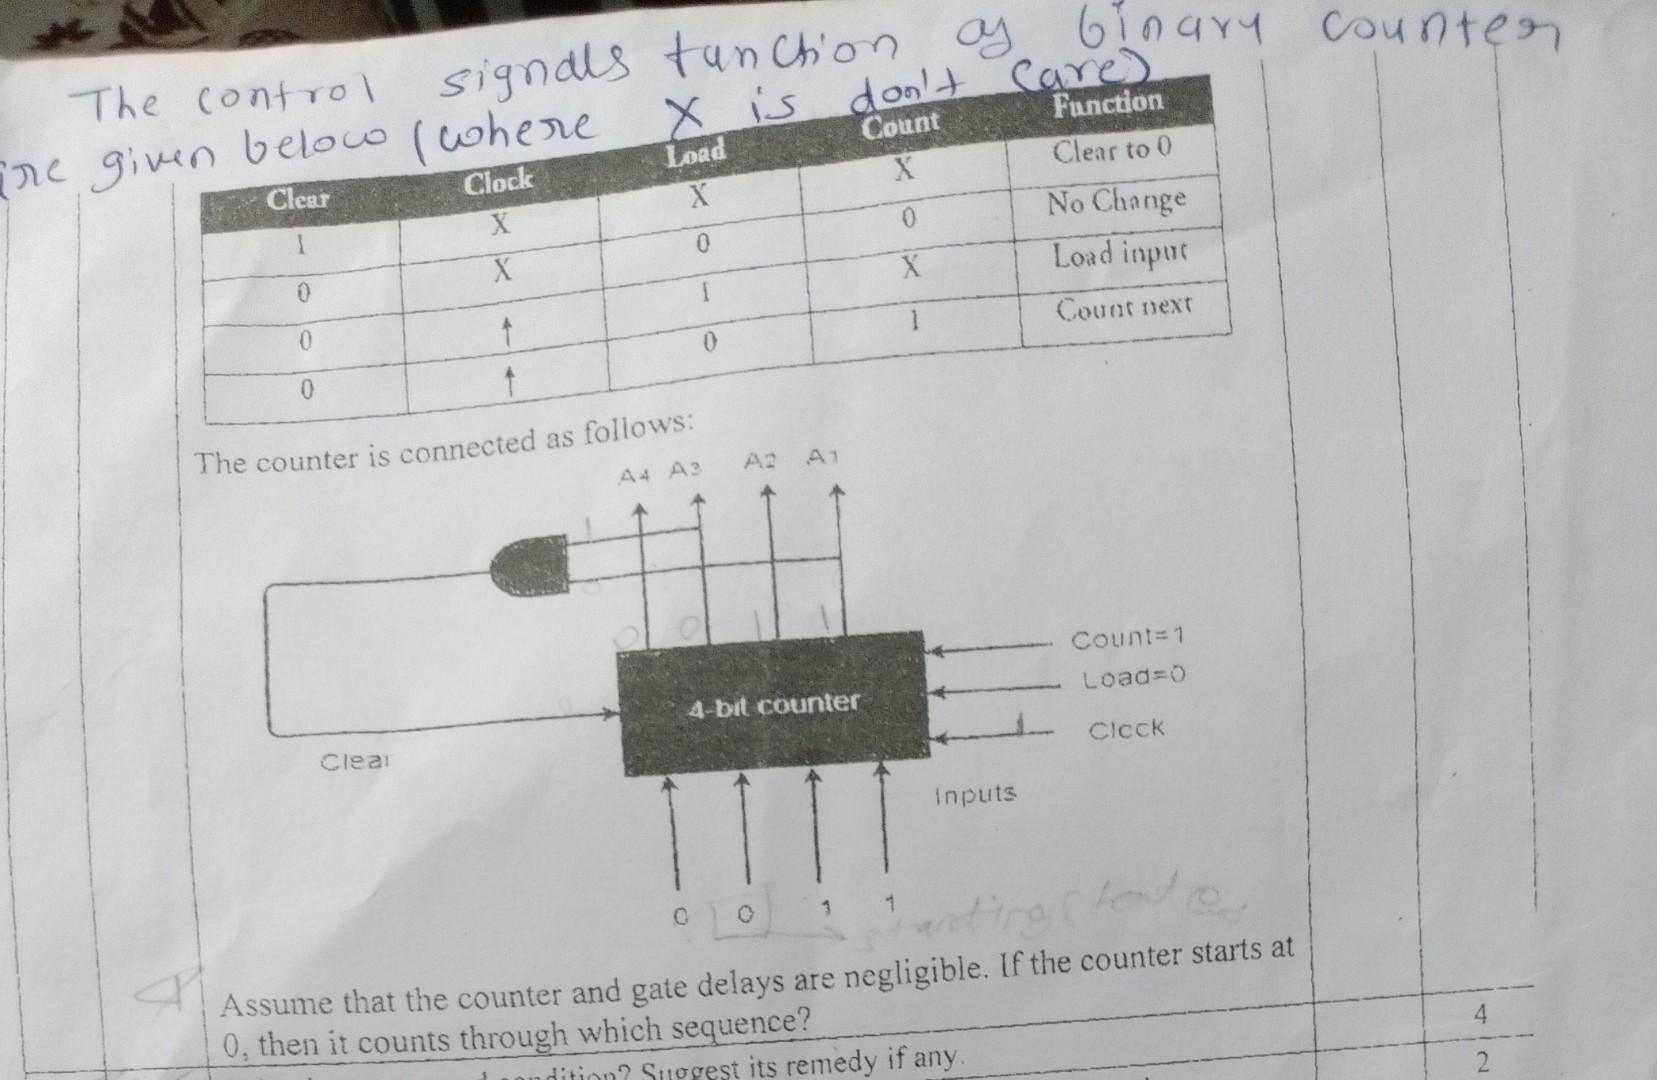 The control signals function of binary counter
are given below (where X is don't care)
Clear Clock Load Count Function
1 X X X Clear to 0
0 X 0 0 No Change
0 ↑ 1 X Load input
0 ↑ 0 1 Count next
The counter is connected as follows:
A4 A3 A2 A1
1
0 0 1 1
Count=1
4-bit counter
Load=0
Clock
Clear
Inputs
0 0 1 1
starting state
Assume that the counter and gate delays are negligible. If the counter starts at
0, then it counts through which sequence?
4
condition? Suggest its remedy if any.
2